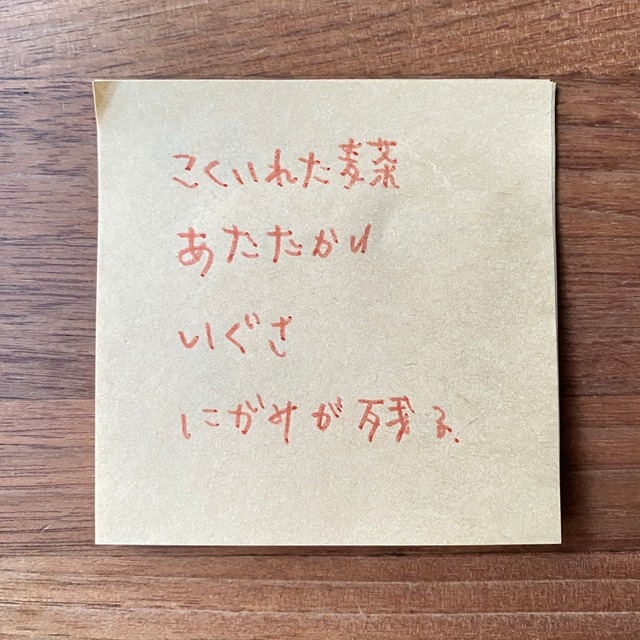 こくいれた麦茶
あたたかい
いぐさ
にがみが残る、